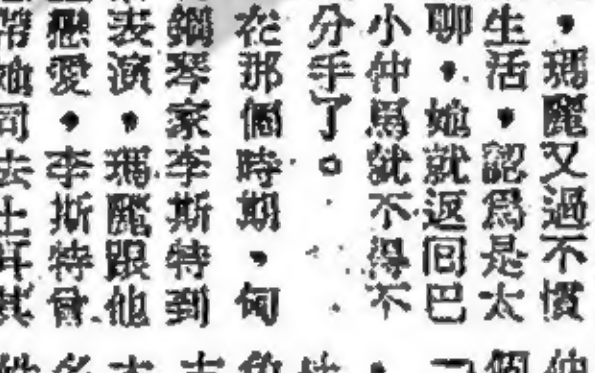 ，瑪麗又過不慣
生活，認爲是太
聊，她就返回巴
小仲馬就不得不
分手了。
在那個時期，匈
鋼琴家李斯特到
表演，瑪麗跟他
戀愛，李斯特曾
帶她同去土耳其